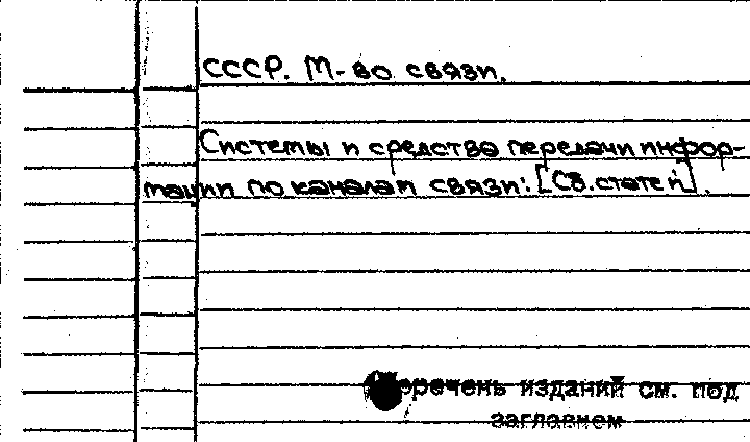 СССР. М-во связи.
Системы и средства передачи инфор-
мации по каналам связи: [Сб. статей].
Перечень изданий см. под
заглавием